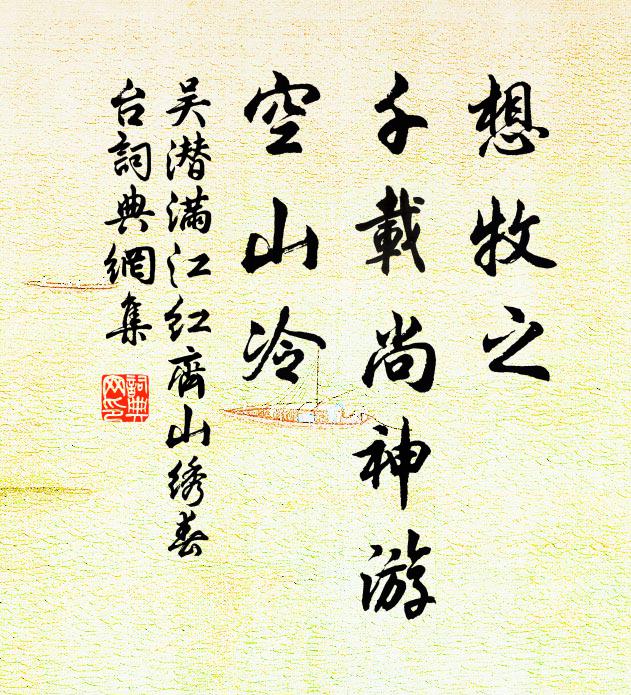 想牧之
千載尚神游
空山冷
吴潜满江红齊山绣春
台詞典網集
詞典
网印